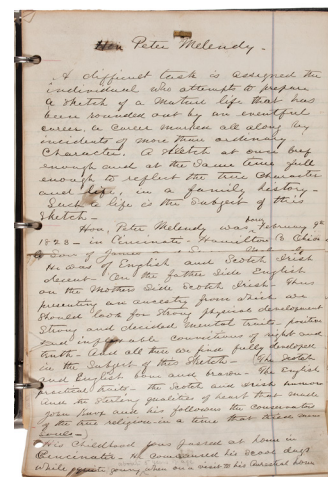 Hon Peter Melendy -
A difficult task is assigned the
individual who attempts to prepare
a sketch of a mature life that has
been rounded out by an eventful
career, a career marked all along by
incidents of more than ordinary
character. A sketch at once brief
enough and at the same time full
enough to reflect the true character
and life, in a family history -
Such a life is the subject of this
Sketch -
Hon, Peter Melendy was born February 9th
1823 - in Cincinnati, Hamilton Co Ohio
Son of James
He was of English and Scotch Irish
decent - On the father side English
on the Mothers side Scotch Irish - Thus
presenting an ancestry from whom we
should look for strong physical development
Strong and decided mental traits - positive
and convictions of right and
truth - And all these are fully developed
in the subject of this sketch - The Scotch
and English brain and brawn - The English
practical traits - the Scotch and Irish
and the sterling qualities of heart that made
John Knox and his followers the conservators
of the true religion - in a time that tried mens
souls -
His Childhood was passed at home in
Cincinnati - He commenced his school days
while quite young, when on a visit to his ancestral home